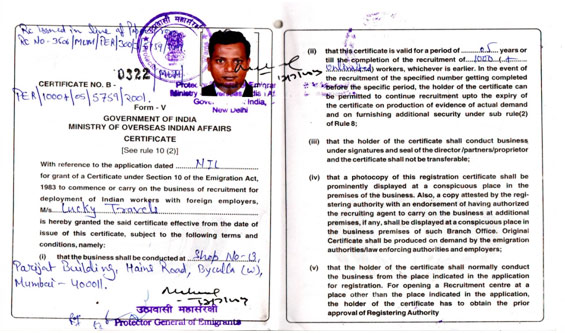 Re issued in
Rc No-
0322 / MUM
CERTIFICATE NO. B -
PER/1000+/05/5759/2001.
Form - V
GOVERNMENT OF INDIA
MINISTRY OF OVERSEAS INDIAN AFFAIRS
CERTIFICATE
[See rule 10 (2)]
With reference to the application dated NIL
for grant of a Certificate under Section 10 of the Emigration Act,
1983 to commence or carry on the business of recruitment for
deployment of Indian workers with foreign employers,
M/s Lucky Travels
is hereby granted the said certificate effective from the date of
issue of this certificate, subject to the following terms and
conditions, namely:
(i) that the business shall be conducted at Shop No-13,
Parijat Building, Hains Road, Byculla (W),
Mumbai - 400011.
उत्प्रवासी महासंरक्षी
Protector General of Emigrants
उत्प्रवासी महासंरक्षी
Ministry
New Delhi
(ii) that this certificate is valid for a period of 05 years or
till the completion of the recruitment of 1000 (+
Unlimited) workers, whichever is earlier. In the event of
the recruitment of the specified number getting completed
before the specific period, the holder of the certificate can
be permitted to continue recruitment upto the expiry of
the certificate on production of evidence of actual demand
and on furnishing additional security under sub rule(2)
of Rule 8;
(iii) that the holder of the certificate shall conduct business
under signatures and seal of the director /partners/proprietor
and the certificate shall not be transferable;
(iv) that a photocopy of this registration certificate shall be
prominently displayed at a conspicuous place in the
premises of the business. Also, a copy attested by the reg-
istering authority with an endorsement of having authorized
the recruiting agent to carry on the business at additional
premises, if any, shall be displayed at a conspicuous place in
the business premises of such Branch Office. Original
Certificate shall be produced on demand by the emigration
authorities/law enforcing authorities and employers;
(v) that the holder of the certificate shall normally conduct
the business from the place indicated in the application
for registration. For opening a Recruitment centre at a
place other than the place indicated in the application,
the holder of the certificate has to obtain the prior
approval of Registering Authority